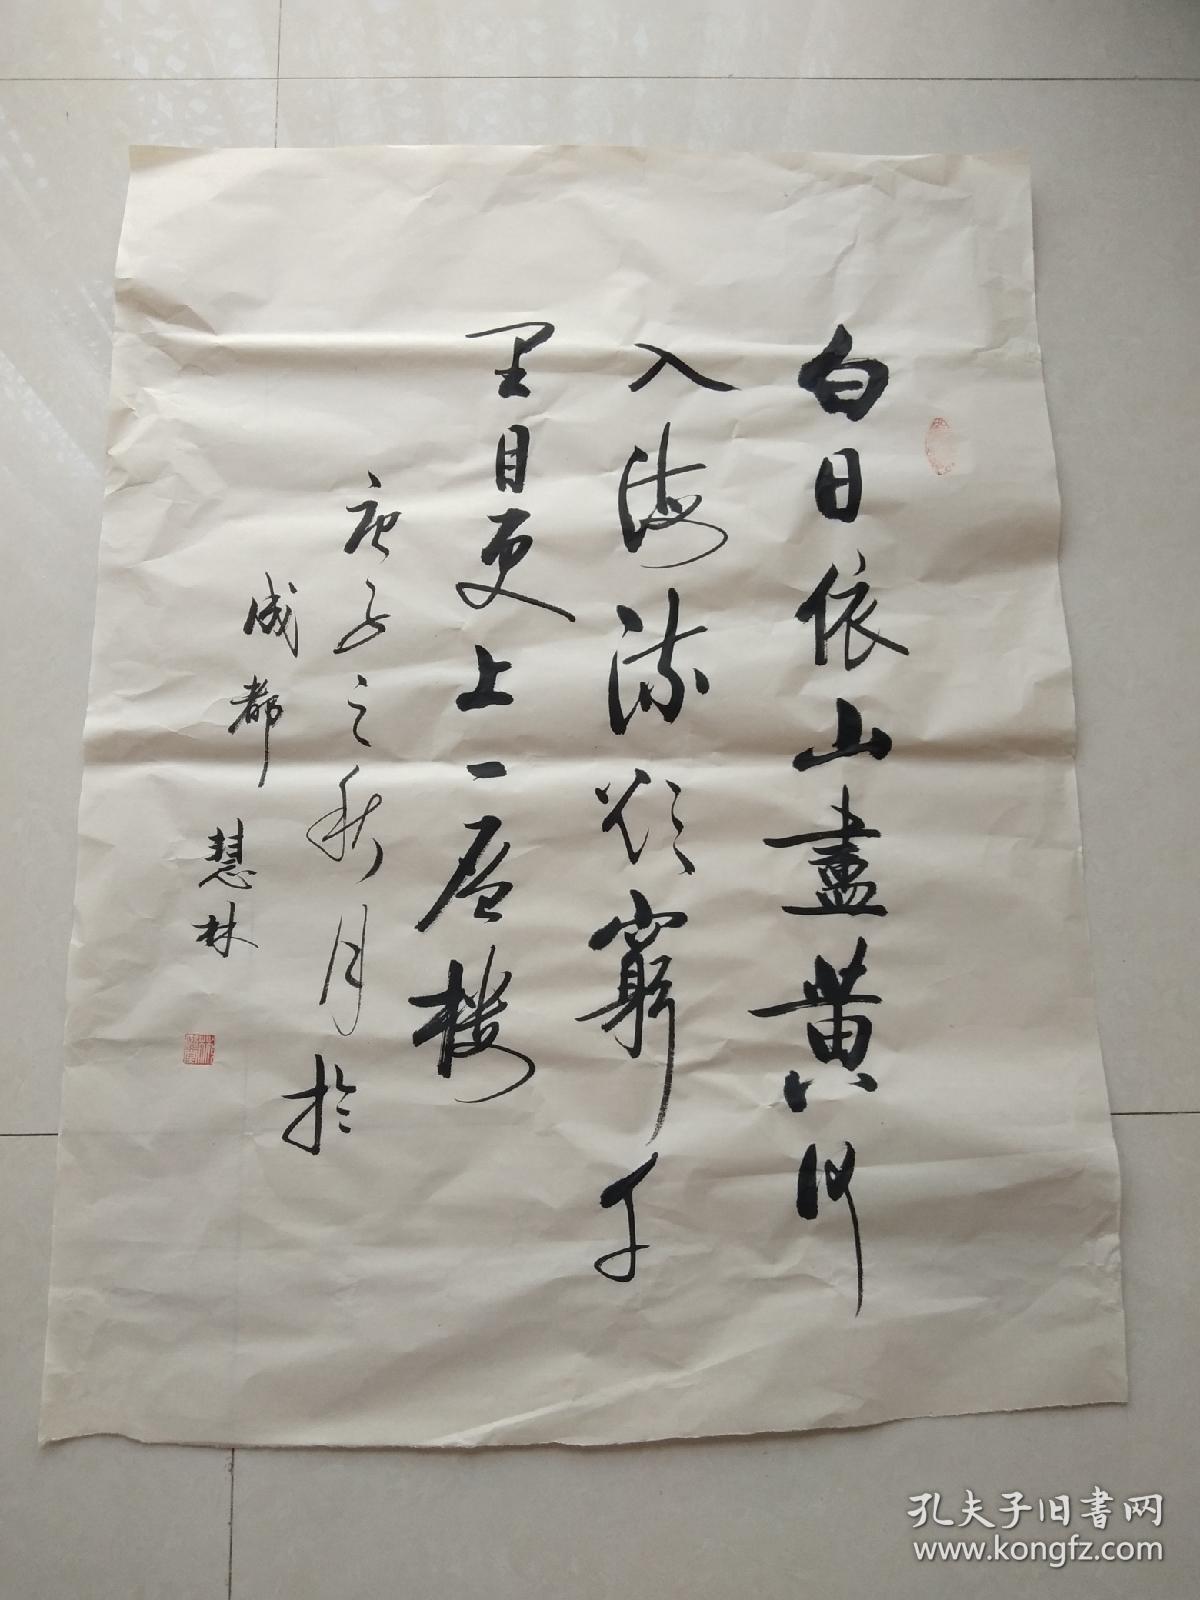 白日依山盡黄河
入海流欲窮千
里目更上一层楼
庚子之秋月於
成都
慧林
孔夫子旧書网
www.kongfz.com